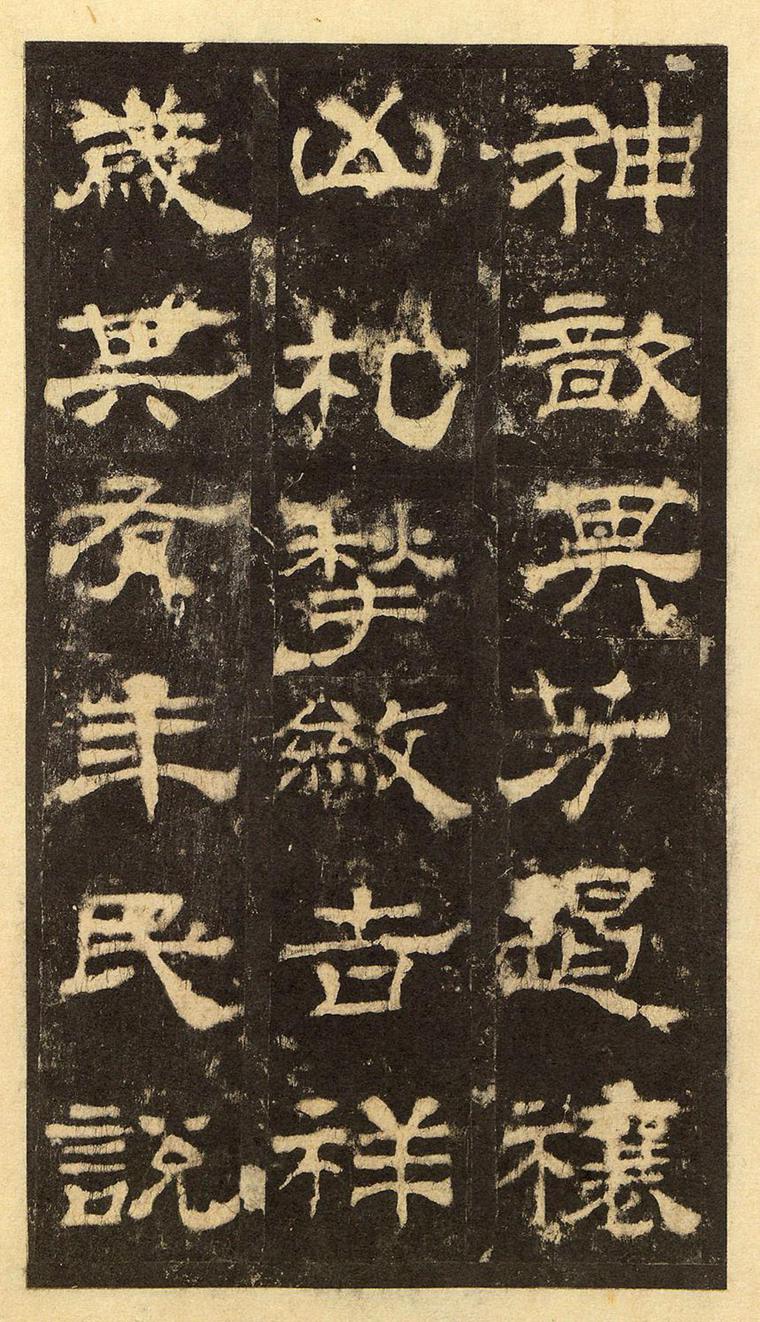 神歆其芳遏禳
凶札揫斂吉祥
歲其有年民說